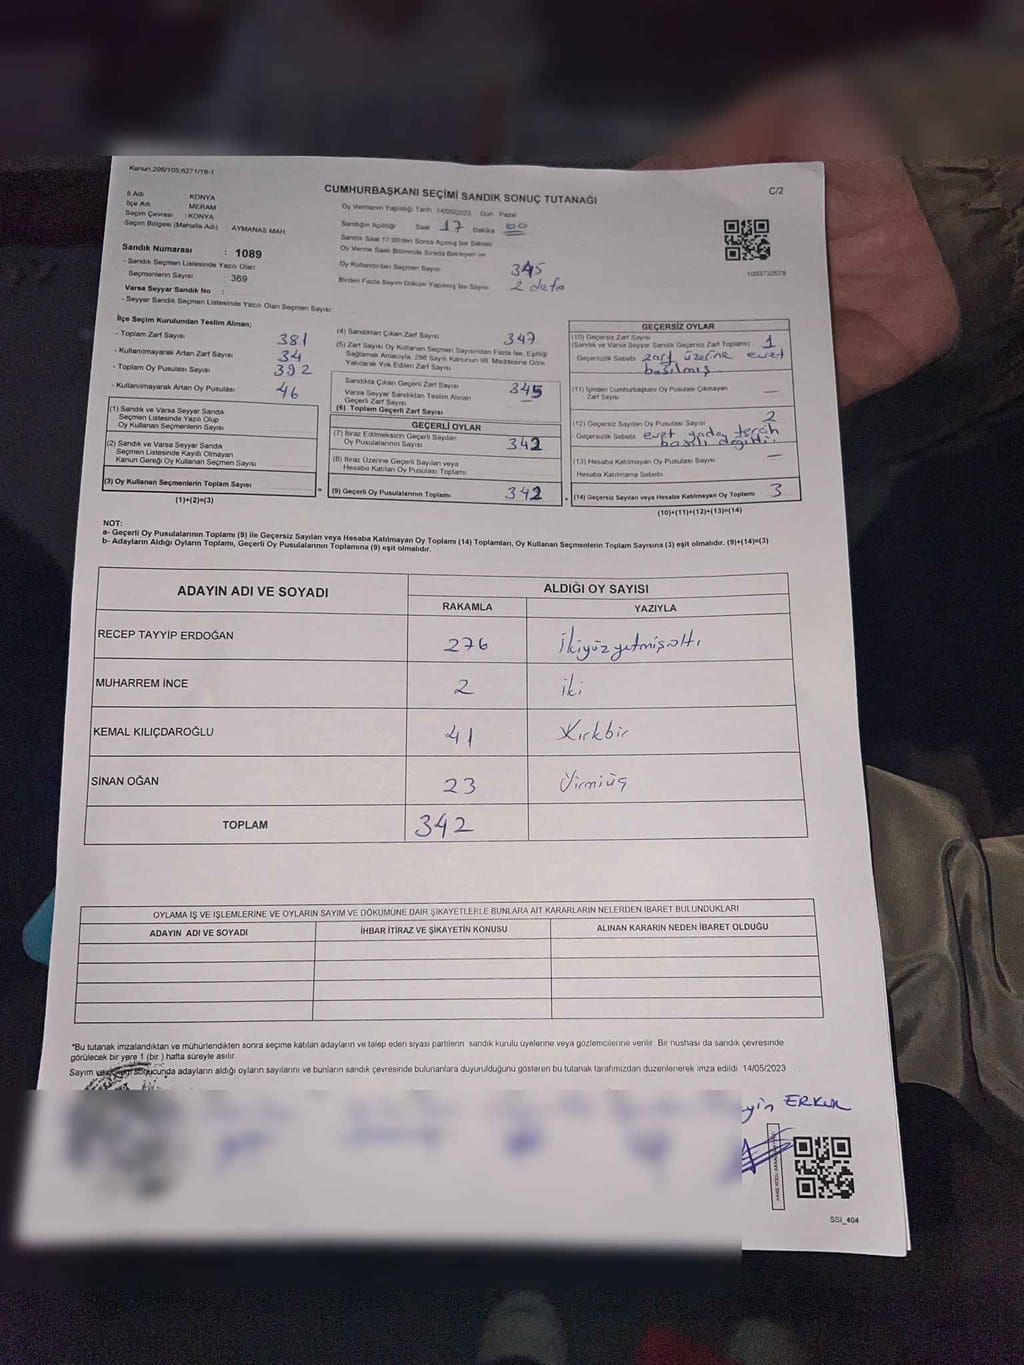 Kanun:298/105;6271/18-1
CUMHURBAŞKANI SEÇİMİ SANDIK SONUÇ TUTANAĞI
C/2
İl Adı KONYA
İlçe Adı MERAM
Seçim Çevresi : KONYA
Seçim Bölgesi (Mahalle Adı) : AYMANAS MAH
Sandık Numarası : 1089
- Sandık Seçmen Listesinde Yazılı Olan
Seçmenlerin Sayısı : 369
Varsa Seyyar Sandık No :
- Seyyar Sandık Seçmen Listesinde Yazılı Olan Seçmen Sayısı:
Oy Vermenin Yapıldığı Tarih 14/05/2023 Gün Pazar
Sandığın Açıldığı Saat 17 Dakika 00
Sandık Saat 17:00'den Sonra Açımış İse Sebebi
Oy Verme Saati Bitiminde Sırada Bekleyen ve
Oy Kullandırılan Seçmen Sayısı 345
Birden Fazla Sayım Döküm Yapılmış İse Sayısı 2 defa
1093732678
İlçe Seçim Kurulundan Teslim Alınan;
- Toplam Zarf Sayısı 381
- Kullanılmayarak Artan Zarf Sayısı 34
- Toplam Oy Pusulası Sayısı 392
- Kullanılmayarak Artan Oy Pusulası 46
(1) Sandık ve Varsa Seyyar Sandık
Seçmen Listesinde Yazılı Olup
Oy Kullanan Seçmenlerin Sayısı
(2) Sandık ve Varsa Seyyar Sandık
Seçmen Listesinde Kaydı Olmayan
Kanun Gereği Oy Kullanan Seçmen Sayısı
(3) Oy Kullanan Seçmenlerin Toplam Sayısı
(1)+(2)=(3)
(4) Sandıktan Çıkan Zarf Sayısı 347
(5) Zarf Sayısı Oy Kullanan Seçmen Sayısından Fazla İse, Eşitliği
Sağlamak Amacıyla, 298 Sayılı Kanunun 98. Maddesine Göre
Yakılarak Yok Edilen Zarf Sayısı
Sandıkta Çıkan Geçerli Zarf Sayısı 345
Varsa Seyyar Sandıktan Teslim Alınan
Geçerli Zarf Sayısı
(6) Toplam Geçerli Zarf Sayısı
GEÇERLİ OYLAR
(7) İtiraz Edilmeksizin Geçerli Sayılan
Oy Pusulalarının Sayısı 342
(8) İtiraz Üzerine Geçerli Sayılan veya
Hesaba Katılan Oy Pusulası Toplamı
= (9) Geçerli Oy Pusulalarının Toplamı 342
GEÇERSİZ OYLAR
(10) Geçersiz Zarf Sayısı
(Sandık ve Varsa Seyyar Sandık Geçersiz Zarf Toplamı) 1
- Geçersizlik Sebebi zarf üzerine evet
basılmış
(11) İçinden Cumhurbaşkanı Oy Pusulası Çıkmayan
Zarf Sayısı —
(12) Geçersiz Sayılan Oy Pusulası Sayısı 2
- Geçersizlik Sebebi evet yada tercih
basılı değildi
(13) Hesaba Katılmayan Oy Pusulası Sayısı —
Hesaba Katılmama Sebebi
+ (14) Geçersiz Sayılan veya Hesaba Katılmayan Oy Toplamı 3
(10)+(11)+(12)+(13)=(14)
NOT:
a- Geçerli Oy Pusulalarının Toplamı (9) ile Geçersiz Sayılan veya Hesaba Katılmayan Oy Toplamı (14) Toplamları, Oy Kullanan Seçmenlerin Toplam Sayısına (3) eşit olmalıdır. (9)+(14)=(3)
b- Adayların Aldığı Oyların Toplamı, Geçerli Oy Pusulalarının Toplamına (9) eşit olmalıdır.
ADAYIN ADI VE SOYADI
ALDIĞI OY SAYISI
RAKAMLA YAZIYLA
RECEP TAYYİP ERDOĞAN 276 İkiyüzyetmişaltı
MUHARREM İNCE 2 iki
KEMAL KILIÇDAROĞLU 41 Kırkbir
SİNAN OĞAN 23 Yirmiüç
TOPLAM 342
OYLAMA İŞ VE İŞLEMLERİNE VE OYLARIN SAYIM VE DÖKÜMÜNE DAİR ŞİKAYETLERLE BUNLARA AİT KARARLARIN NELERDEN İBARET BULUNDUKLARI
ADAYIN ADI VE SOYADI İHBAR İTİRAZ VE ŞİKAYETİN KONUSU ALINAN KARARIN NEDEN İBARET OLDUĞU
*Bu tutanak imzalandıktan ve mühürlendikten sonra seçime katılan adayların ve talep eden siyasi partilerin sandık kurulu üyelerine veya gözlemcilerine verilir. Bir nüshası da sandık çevresinde
görülecek bir yere 1 (bir ) hafta süreyle asılır.
Sayım ve sonucunda adayların aldığı oyların sayılarını ve bunların sandık çevresinde bulunanlara duyurulduğunu gösteren bu tutanak tarafımızdan düzenlenerek imza edildi. 14/05/2023
ERKUL
SSI_404